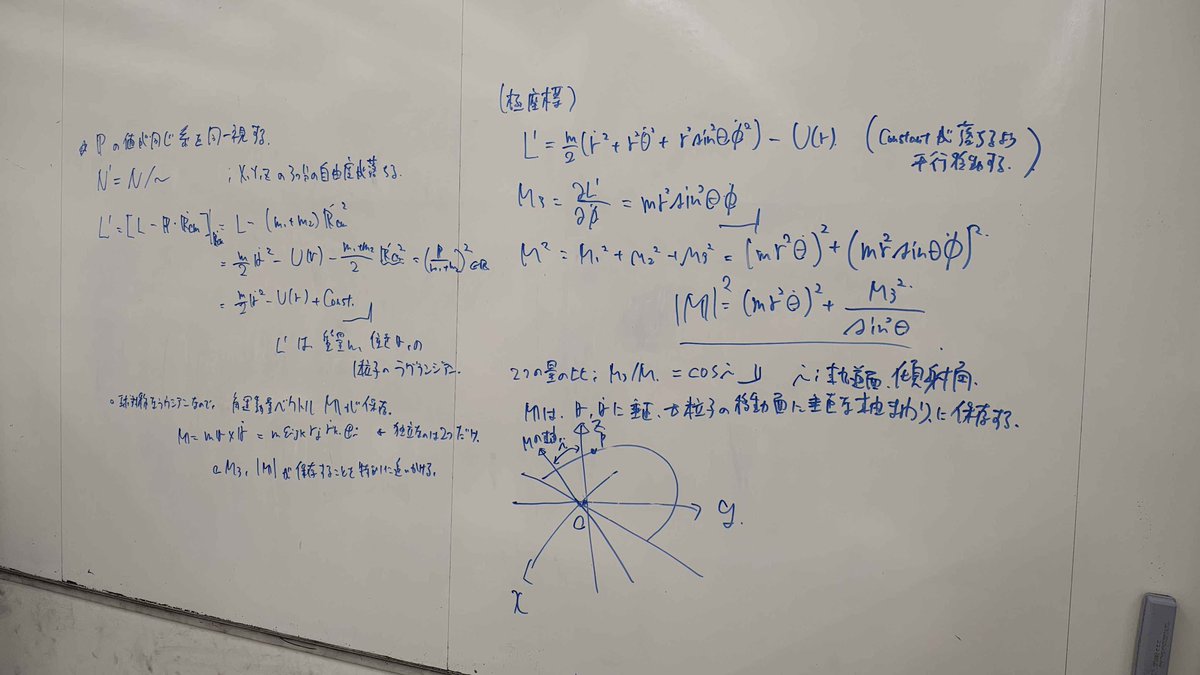 ℙの値が同じ系を同一視する.
N' = N/~ ; X,Y,Zの3つ分の自由度が落ちる.
L' = [L - ℙ·Ṙcm] = L - (m₁+m₂) Ṙcm²
= m/2 ṙ² - U(r) - (m₁+m₂)/2 Ṙcm² = (ℙ/(m₁+m₂))² ∈ ℝ
= m/2 ṙ² - U(r) + Const.
L' は 質量m, 位置rの
1粒子のラグランジアン.
球対称なラグランジアンなので, 角運動量ベクトル 𝕄が保存.
𝕄 = m r × ṙ = m εijk rj ṙk ei ← 独立なのは2つだけ.
M₃, |𝕄| が保存することを特別に追いかける.
(極座標)
L' = m/2 (ṙ² + r²θ̇² + r² sin²θ φ̇²) - U(r). (Constantが落ちるよう
平行移動する.)
M₃ = ∂L'/∂φ̇ = mr² sin²θ φ̇
M² = M₁² + M₂² + M₃² = (mr²θ̇)² + (mr² sinθ φ̇)².
|𝕄|² = (mr²θ̇)² + M₃²/sin²θ
2つの量の比; M₃/M = cos i i; 軌道面 傾斜角.
𝕄は, r, ṙに垂直. 粒子の移動面に垂直な軸まわりに保存する.
𝕄の軸 i z P
O y.
x